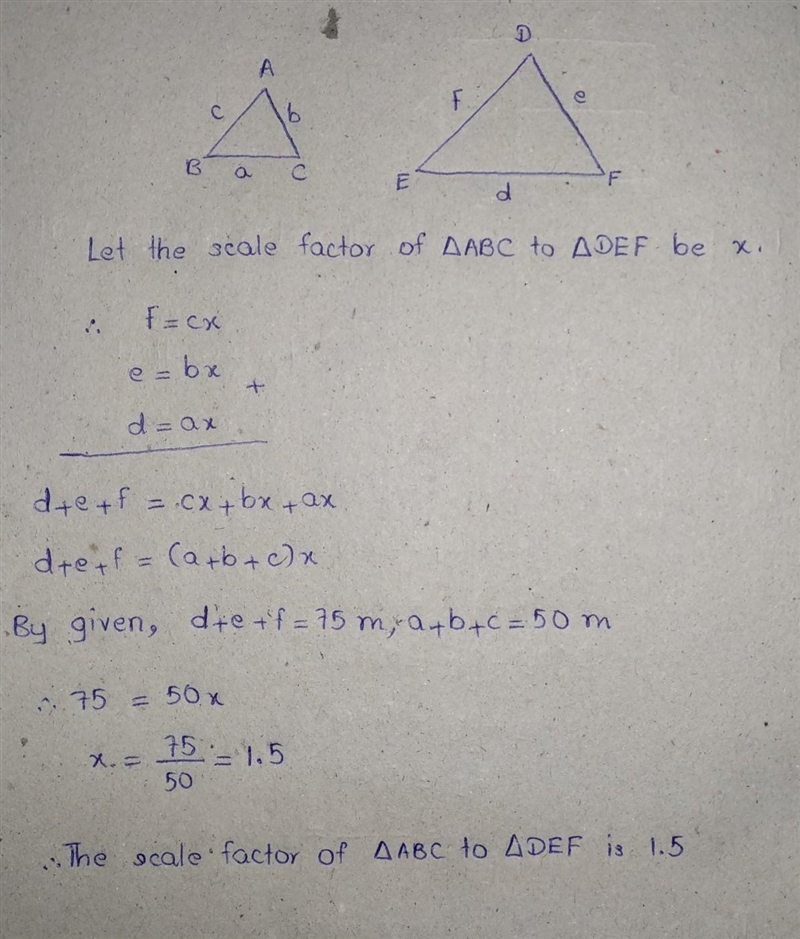 A
c b
B a C
D
f e
E d F
Let the scale factor of △ABC to △DEF be x.
∴ f = cx
e = bx +
d = ax
d+e+f = cx+bx+ax
d+e+f = (a+b+c)x
By given, d+e+f = 75 m, a+b+c = 50 m
∴ 75 = 50x
x = 75/50 = 1.5
∴ The scale factor of △ABC to △DEF is 1.5